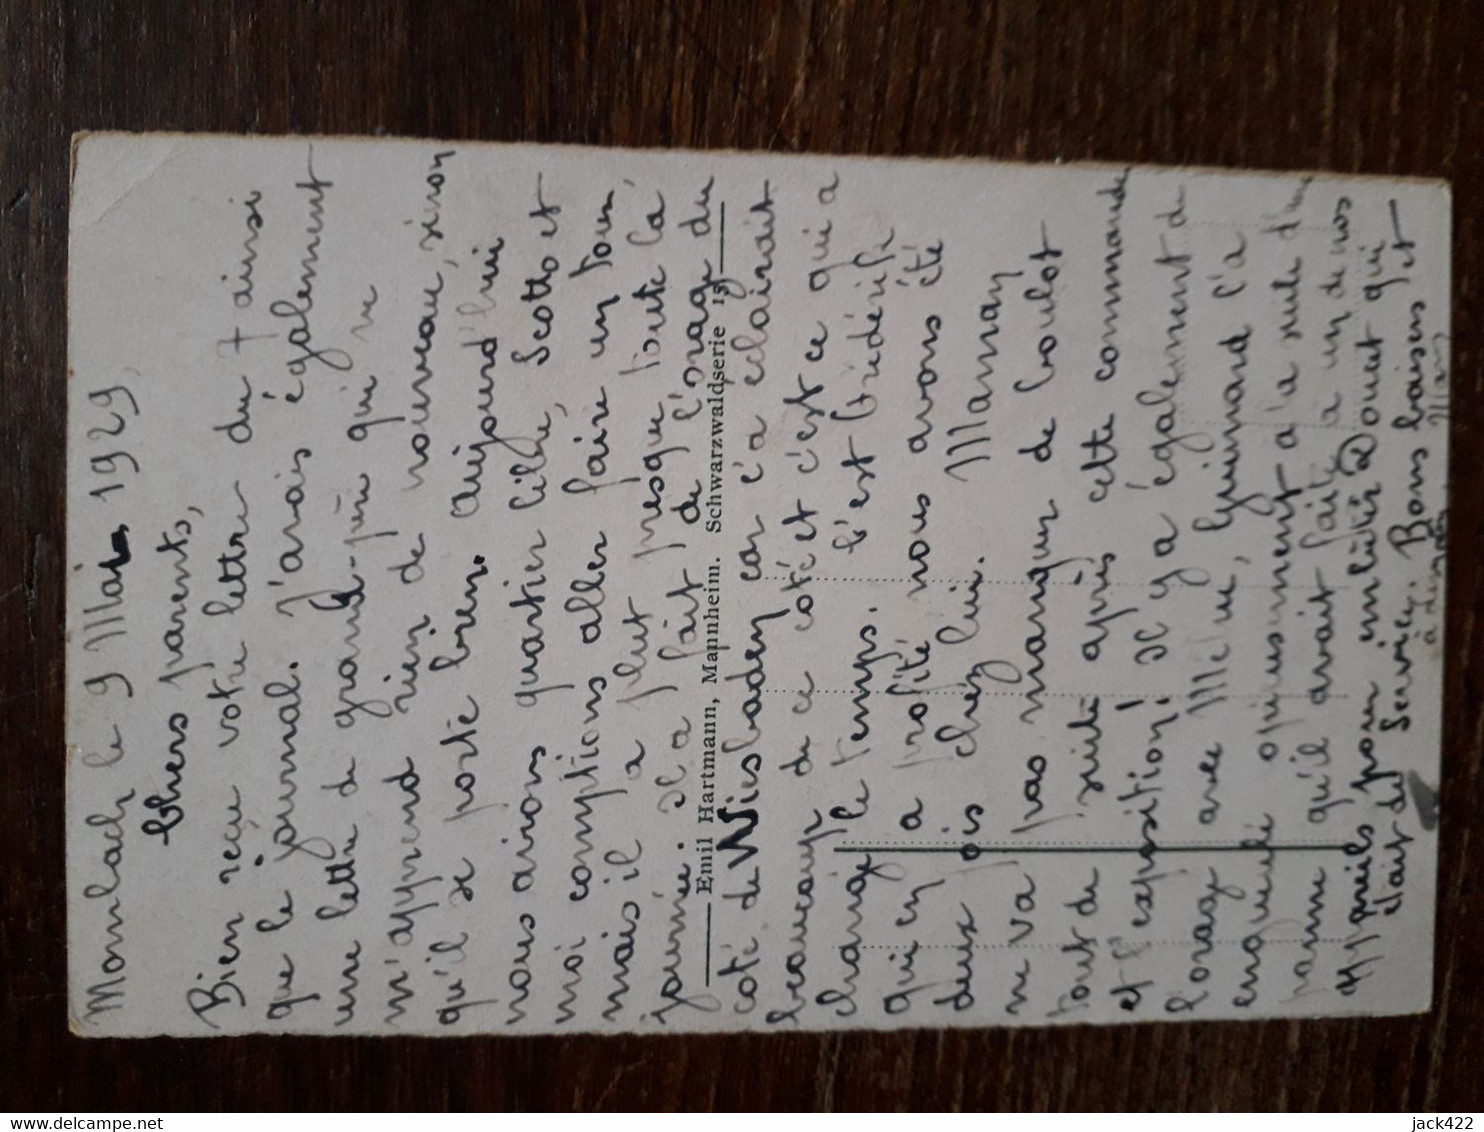 Mombach le 9 Mai 1929,
Chers parents,
Bien reçu votre lettre du 7 ainsi
que le journal. J'avais également
une lettre de grand-père qui ne
m'apprend rien de nouveau, sinon
qu'il se porte bien. Aujourd'hui
nous avions quartier libre, Scotto et
moi comptions aller faire un tour
mais il a plut presque toute la
journée. Il a fait de l'orage du
Emil Hartmann, Mannheim. Schwarzwaldserie 15
coté de Wiesbaden car c'a eclairait
beaucoup de ce coté et c'est ce qui a
changé le temps. C'est Frédérife
qui en a profité nous avons été
deux ois chez lui. Mannay
ne va pas manquer de boulot
tout de suite après cette commande
et l'exposition! Il y a également de
l'orage avec Melle, Guinnard l'a
enqueulé a la suite d'une
panne qu'il avait faite a un de nos
appareils pour embêter Douet qui
etait de Service. Bons baisers et
à demain Marc